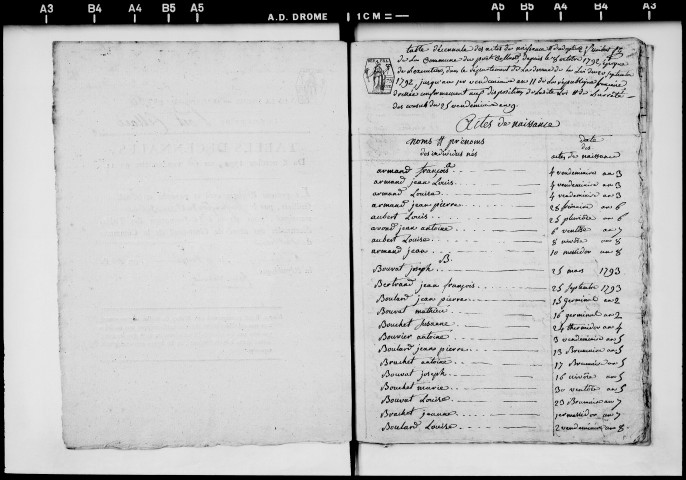 A3 B4 A4 B5 A5 A.D. DROME 1 CM A5 B5 A4 B4 A3
table décennale des actes de naissance
de la Commune depuis le 1792, époque
de l'exécution, dans le département de la drome de la loi du 20 septembre
1792, jusqu'au 1er vendemiaire an 11 de la république française
dressée conformement aux dispositions de la de l'arrêté
des consuls du 25 vendemiaire an 9.
Actes de naissance
noms & prénoms des individus nés
date des actes de naissance
armand françois 4 vendemiaire an 3
armand jean Louis 4 vendemiaire an 3
armand Louise 4 vendemiaire an 3
armand jean pierre 28 frimaire an 6
aubert Louis 25 pluviose an 6
avond jean antoine 6 ventose an 7
aubert Louise 8 nivose an 8
armand jean 10 messidor an 8
B.
Bouvat joseph 25 mars 1793
Bertrand jean françois 25 Septembre 1793
Boulard jean pierre 15 Germinal an 2
Bouvat mathieu 16 germinal an 2
Bouchet Suzanne 24 thermidor an 4
Bouvier antoine 3 vendemiaire an 5
Boulard jean pierre 13 Brumaire an 5
Brachet antoine 17 Brumaire an 5
Bouvat joseph 16 nivose an 5
Bouchet marie 30 ventose an 5
Bouvat Louise 23 Brumaire an 7
Brachet jeanne 1er messidor an 7
Boulard Louise 2 vendemiaire an 8